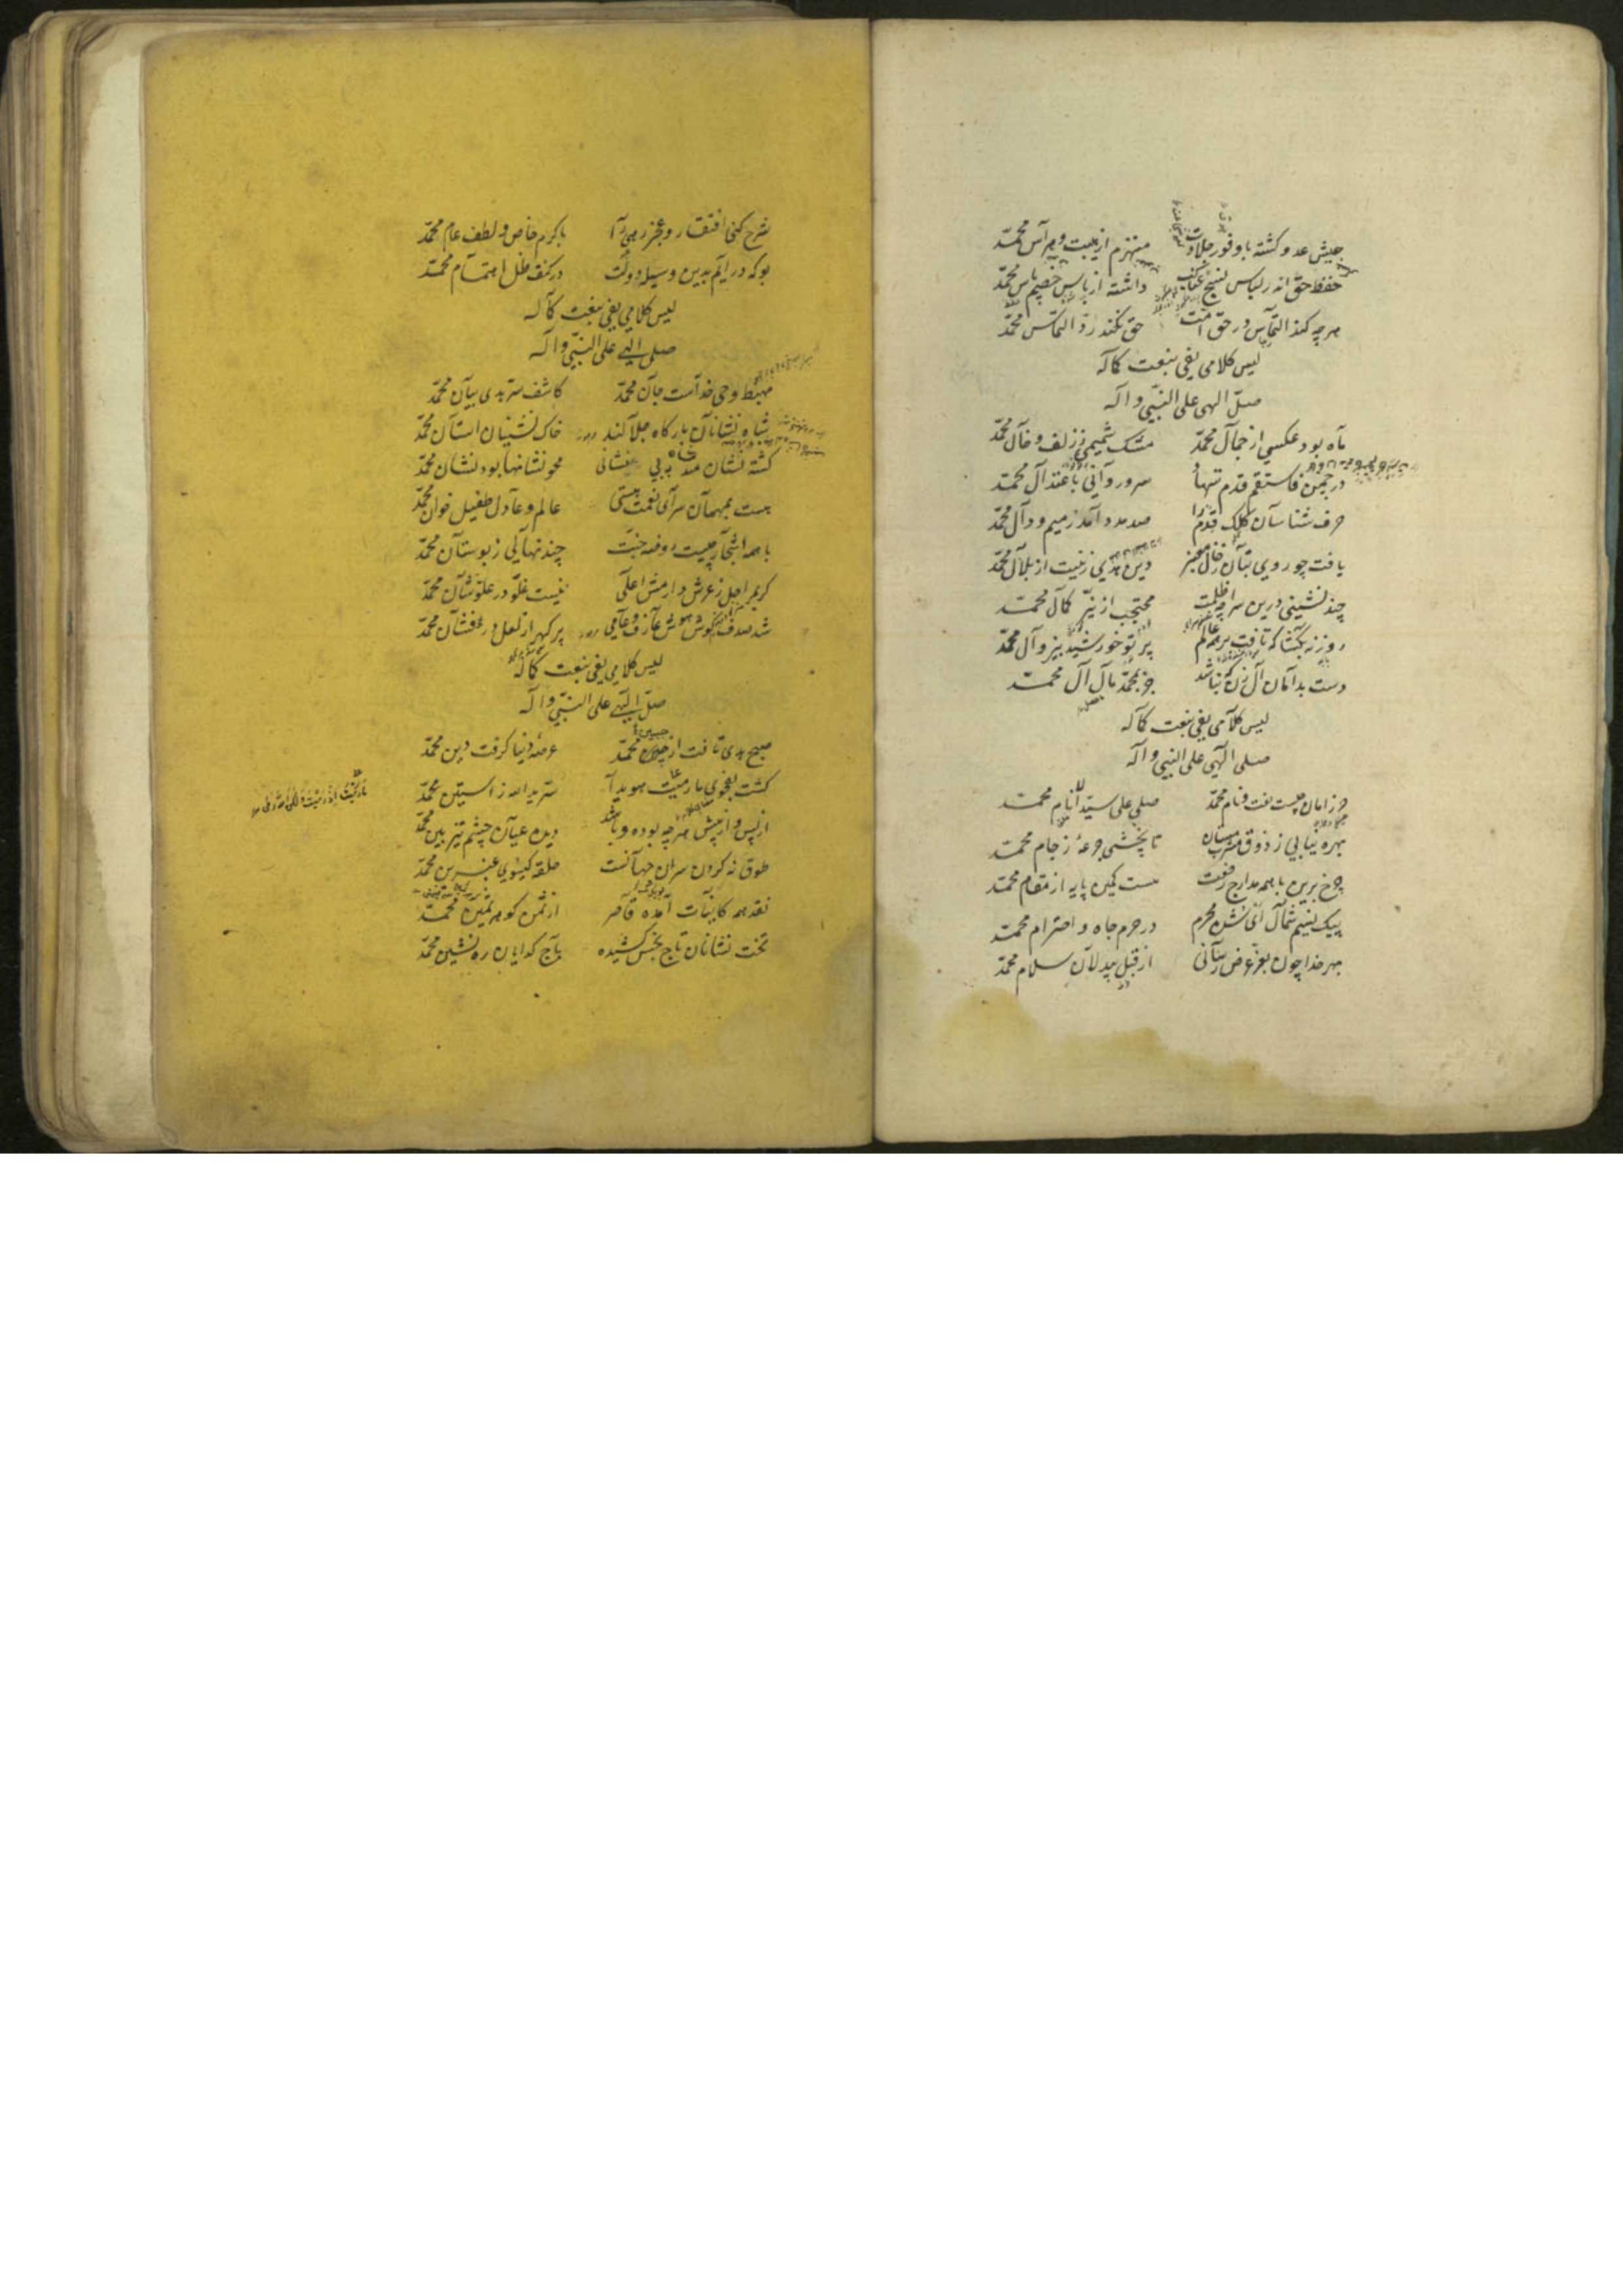 جیش عدو کشته با وفور جلادت منهزم از هیبت و هراس محمّد
حفظ حق اندر لباس نسج عناکب داشته از باس خصم پاس محمّد
هرچه کند التماس در حق امّت حق نکند ردّ التماس محمّد
لیس کلامی یفی بنعت کماله
صلّ الهی علی النبیّ و آله
ماه بود عکسی از جمال محمّد مشک شمیمی ز زلف و خال محمّد
در چمن فاستقم قدم ننهاد سرو روانی باعتدال محمّد
حرف شناسان کلک قدم را صد مدد آمد ز میم و دال محمّد
یافت چو روی بتان ز خال معنبر دین هدی زینت از بلال محمّد
چند نشینی درین سراچه ظلمت محتجب از نیّر کمال محمّد
روزنه بگشا که تافت بر همه عالم پرتو خورشید بی‌زوال محمّد
دست بدامان آل زن که نباشد جز بمحمّد مآل آل محمّد
لیس کلامی یفی بنعت کماله
صلی الهی علی النبی و آله
حرز امان چیست نعت و نام محمّد صلی علی سیّد الانام محمّد
بهره نیابی ز ذوق مستان تا نچشی جرعهٔ ز جام محمّد
چرخ برین با همه مدارج رفعت هست کمین پایه از مقام محمّد
پیک نسیم شمال ای شده محرم در حرم جاه و احترام محمّد
بهر خدا چون بعز عرض رسانی از قبل بیدلان سلام محمّد
شرح کنی افتقار و عجز رهی را با کرم خاص و لطف عام محمّد
بو که درآیم بدین وسیله دولت در کنف ظل اهتمام محمّد
لیس کلامی یفی بنعت کماله
صلی الهی علی النبیّ و آله
مهبط وحی خداست جان محمّد کاشف سرّ هدی بیان محمّد
شاه نشانان بارگاه جلالند خاک نشینان آستان محمّد
کشته نشان مند به بی نشانی محو نشانها بود نشان محمّد
هست بمهمان سرای نعمت هستی عالم و عادل طفیل خوان محمّد
با همه اشجار چیست روضه جنّت چند نهالی ز بوستان محمّد
کریم اجل ز عرش دارمش اعلی نیست غلوّ در علوّ شان محمّد
شد صدف گوش هوش عارف و عامی پر گهر از لعل درفشان محمّد
لیس کلامی یفی بنعت کماله
صلّ الهی علی النبیّ و آله
صبح هدی تافت از جبین محمّد عرصهٔ دنیا گرفت دین محمّد
گشت بفحوی ما رمیت هویدا سرّ ید الله ز آستین محمّد
ما رمیت اذ رمیت ولکن الله رمی
از پس و از پیش هرچه بوده و باشد دیده عیان چشم تیزبین محمّد
طوق نه گردن سران جهانست حلقه گیسوی عنبرین محمّد
نقد همه کاینات آمده قاصر از ثمن گوهر ثمین محمّد
تخت نشانان تاج بخش کشیده باج گدایان ره نشین محمّد